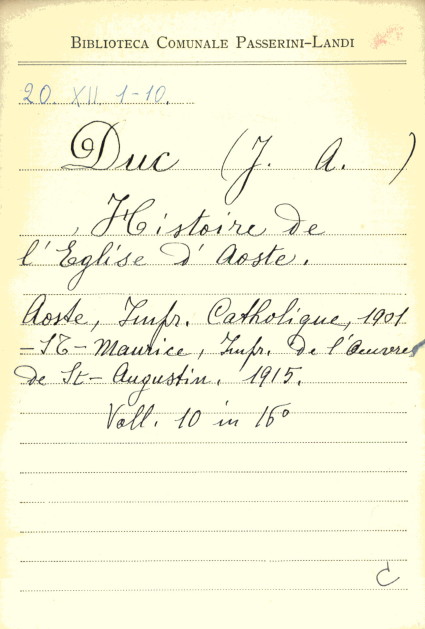 BIBLIOTECA COMUNALE PASSERINI-LANDI
20. XII. 1-10.
Duc (J. A. )
Histoire de
l'Eglise d'Aoste.
Aoste, Impr. Catholique, 1901
-St-Maurice, Impr. de l'Oeuvre
de St-Augustin. 1915.
Voll. 10 in 16°
C